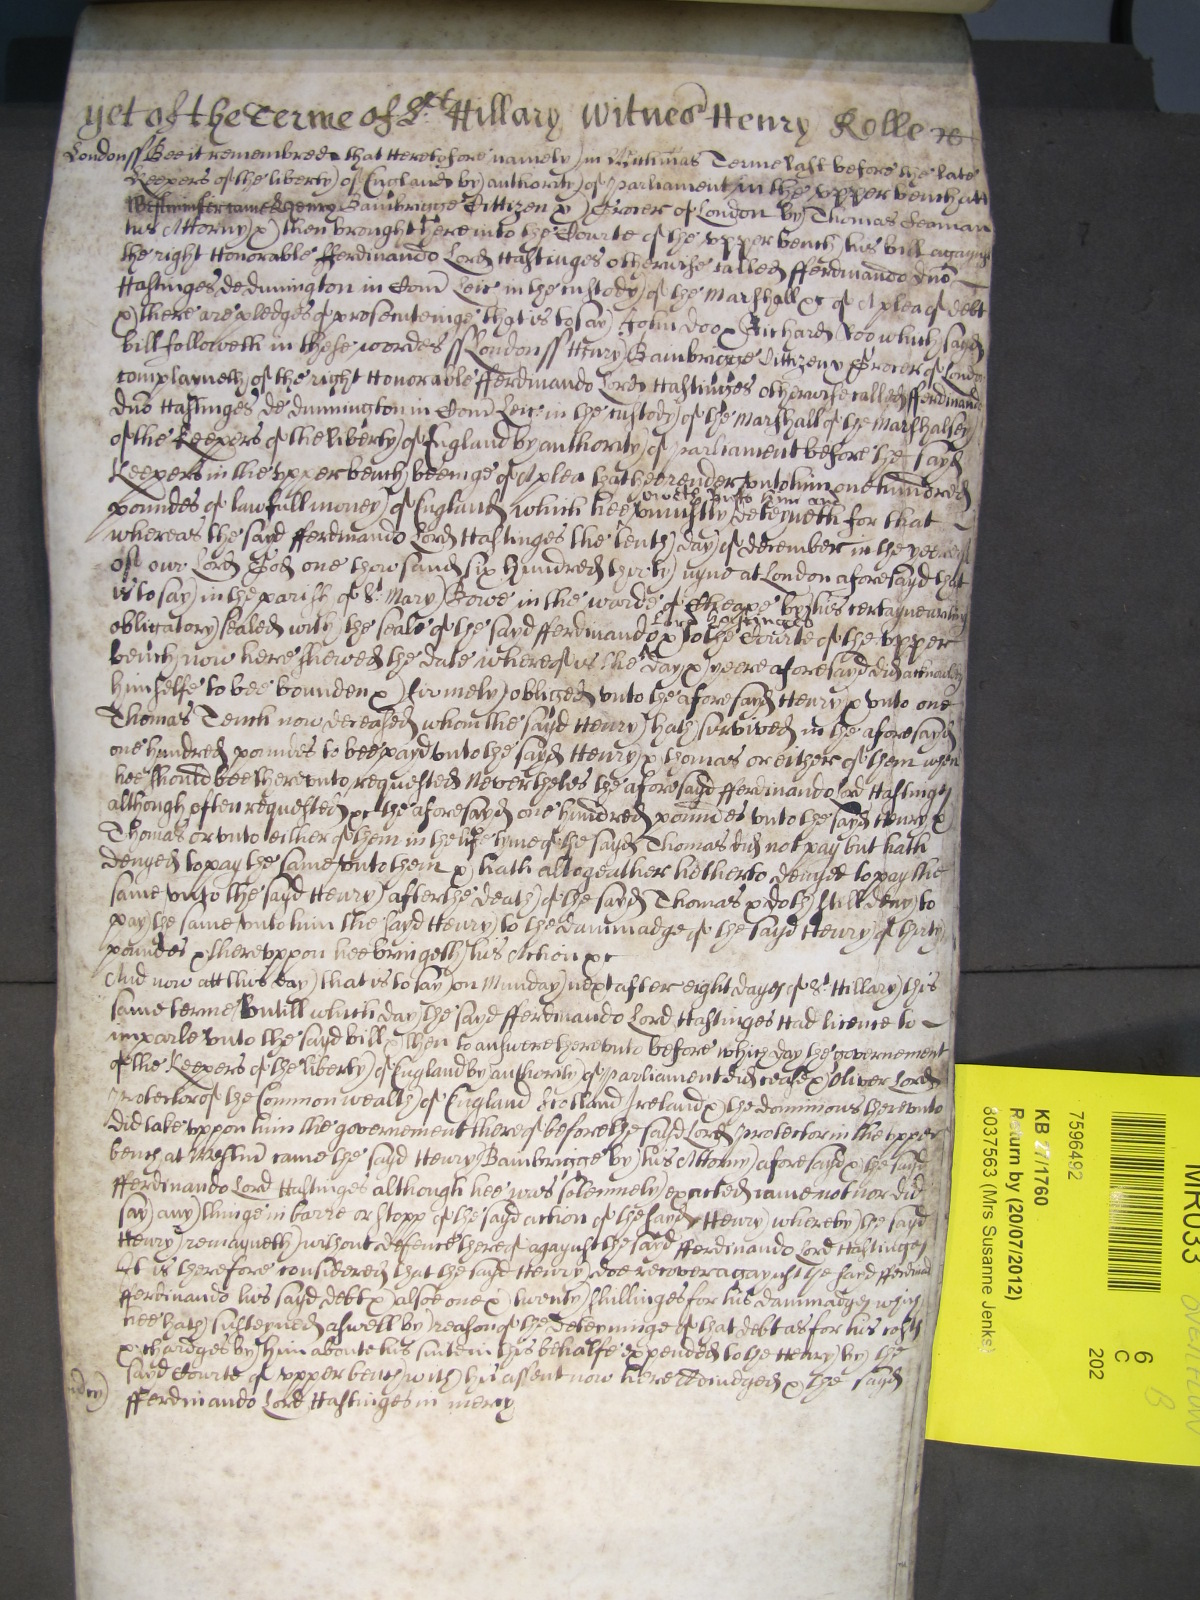 yet of the Terme of St Hillary Witnes Henry Rolle &c
London ss Bee it remembred that heretofore namely in Michmas Terme last before the late
Keepers of the liberty of England by authority of parliament in the vpper bench att
Westminster came Henry Bambrigge Cittizen & Grocer of London by Thomas Seaman
his Attorny & then brought here into the Courte of the vpper bench his bill agaynst
the right Honorable fferdinando Lord Hastinges otherwise called fferdinando Dno
Hastinges de dunnington in Com Leic in the custody of the Marshall &c of A plea of debt
& there are pledges of prosecuteinge that is to say John Doo & Richard Roo which sayd
bill followeth in these woordes ss London ss Henry Bambrigge Cittizen & Grocer of London
complayneth of the right Honorable fferdinando Lord Hastinges otherwise called fferdinando
Dno Hastinges de dunnington in Com Leic in the custody of the Marshall of the Marshalsey
of the Keepers of the liberty of England by authority of parliament before the sayd
Keepers in the vpper bench beeinge of A plea that hee render vnto him one hundred
poundes of lawfull money of England which hee oweth vnto him and vniustly deteyneth for that
whereas the sayd fferdinando Lord Hastinges the tenth day of december in the yeere
of our Lord God one thowsand six hundred thirty nyne at London aforesayd that
is to say in the parish of St Mary Bowe in the warde of Cheape by his certayne writing
obligatory sealed with the seale of the sayd fferdinando Lord Hastinges & to the Courte of the vpper
bench now here shewed the date whereof is the day & yeere aforesayd did acknowledge
himselfe to bee bounden & firmely obliged vnto the aforesayd Henry & vnto one
Thomas Tench now deceased whom the sayd Henry hath survived in the aforesayd
one hundred poundes to bee payd vnto the sayd Henry & Thomas or either of them when
hee should bee therevnto requested Neverthelesse the aforesayd fferdinando Lord Hastinges
although often requested &c the aforesayd one hundred poundes vnto the sayd Henry &
Thomas or vnto either of them in the life tyme of the sayd Thomas did not pay but hath
denyed to pay the same vnto them & hath altogeather hetherto denyed to pay the
same vnto the sayd Henry after the death of the sayd Thomas & doth still deny to
pay the same vnto him the sayd Henry to the dammadge of the sayd Henry of thirty
poundes & therevppon hee bringeth his Action &c
And now att this day that is to say on Munday next after eight dayes of St Hillary this
same terme vntill which day the sayd fferdinando Lord Hastinges had licence to
imparle vnto the sayd bill & then to answere therevnto before which day the governement
of the Keepers of the liberty of England by authority of parliament did cease & Oliver Lord
Protector of the Common wealth of England Scotland Ireland & the dominions therevnto
did take vppon him the governement thereof before the sayd Lord Protector in the vpper
bench at Westmr came the sayd Henry Bambrigge by his Attorny aforesayd & the sayd
fferdinando Lord Hastinges although hee was solemnely exacted came not nor did
say any thinge in barre or stopp of the sayd action of the sayd Henry whereby the sayd
Henry remayneth without defence thereof agaynst the sayd fferdinando Lord Hastinges
It is therefore considered that the sayd Henry doe recover agaynst the sayd fferdinand
fferdinando his sayd debt & alsoe one & twenty shillinges for his dammadges which
hee hath susteyned aswell by reason of the deteyninge of that debt as for his costs
& chardges by him aboute his suite in this behalfe expended to the Henry by the
sayd Courte of vpper bench with his assent now here Adiudged & the sayd
fferdinando Lord Hastinges in mercy
MR033
7596492
KB 27/1760
Return by (20/07/2012)
8037563 (Mrs Susanne Jenks)
6
C
202